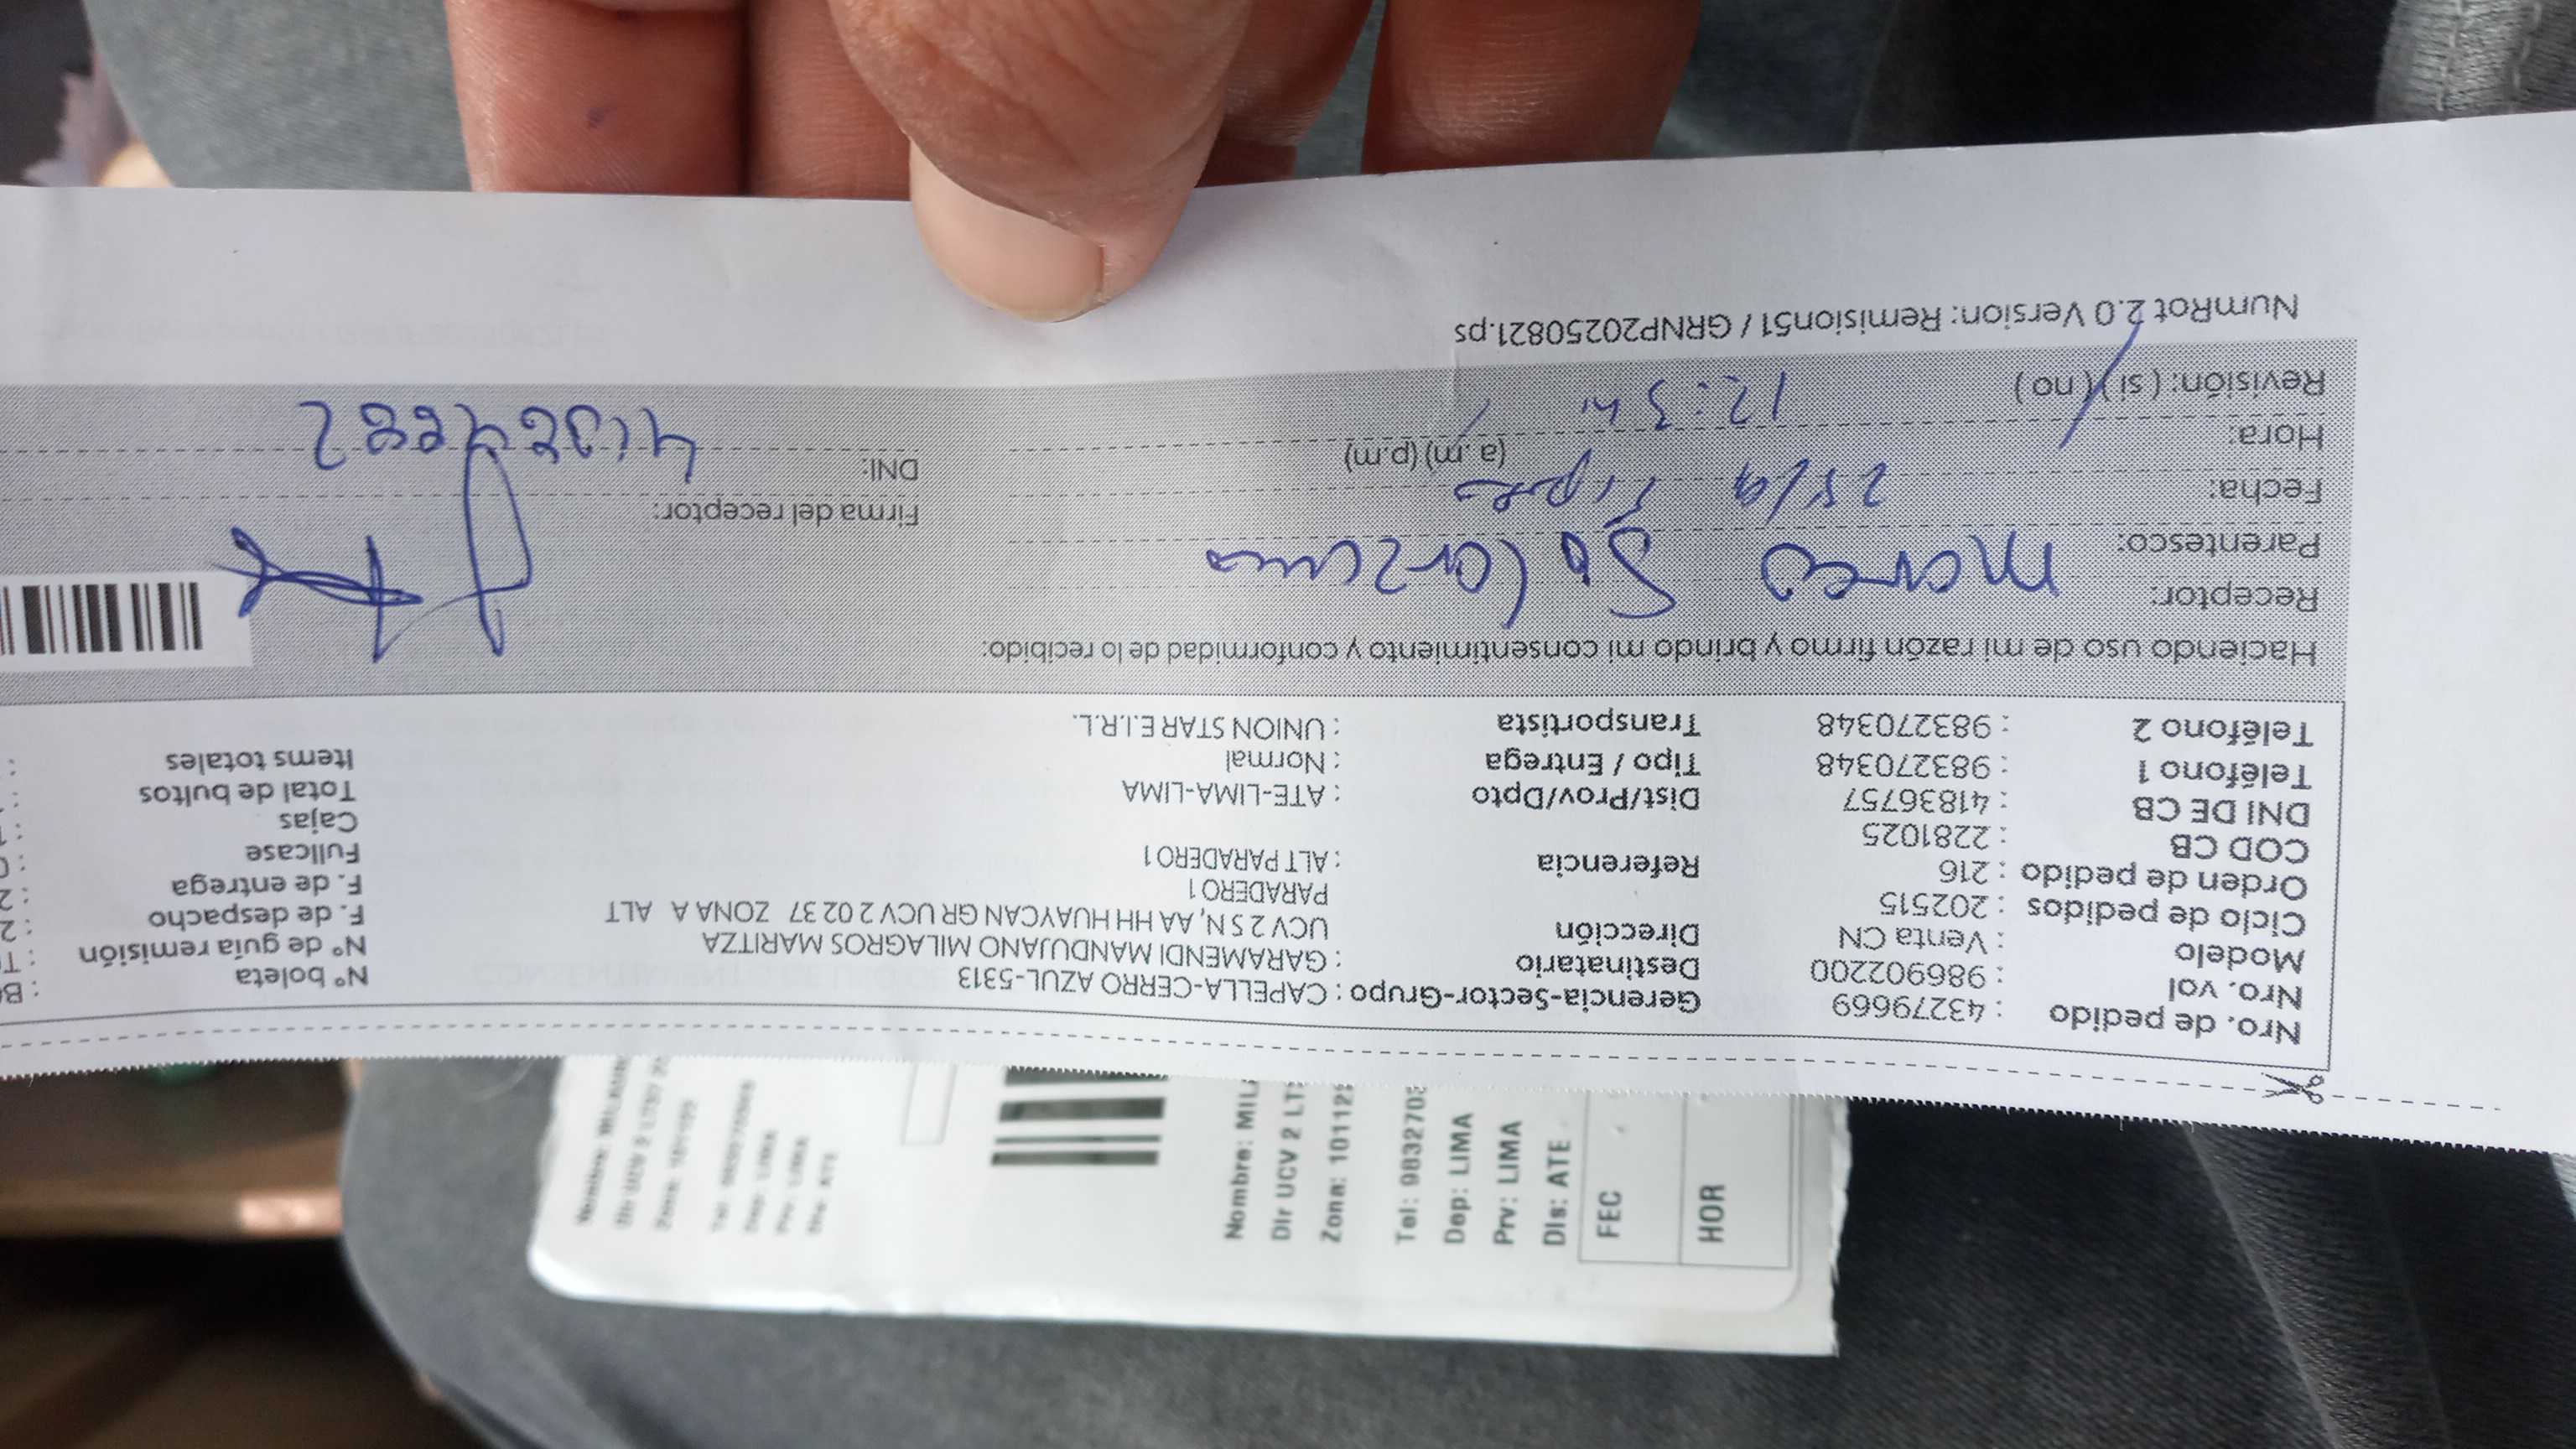 Nro. de pedido : 43279669
Nro. vol : 986902200
Modelo : Venta CN
Ciclo de pedidos : 202515
Orden de pedido : 216
COD CB : 2281025
DNI DE CB : 41836757
Teléfono 1 : 983270348
Teléfono 2 : 983270348
Gerencia-Sector-Grupo : CAPELLA-CERRO AZUL-5313
Destinatario : GARAMENDI MANDUJANO MILAGROS MARITZA
Dirección UCV 2 S N, AA HH HUAYCAN GR UCV 2 02 37 ZONA A ALT
PARADERO 1
Referencia : ALT PARADERO 1
Dist/Prov/Dpto : ATE-LIMA-LIMA
Tipo / Entrega : Normal
Transportista : UNION STAR E.I.R.L.
N° boleta
N° de guía remisión
F. de despacho
F. de entrega
Fullcase
Cajas
Total de bultos
Items totales
Haciendo uso de mi razón firmo y brindo mi consentimiento y conformidad de lo recibido:
Receptor: Marco Solorzano
Parentesco:
Fecha: 25/9
Hora: (a.m) (p.m)
Revisión: ( si ) ( no )
Firma del receptor:
DNI:
NumRot 2.0 Version: Remision51 / GRNP20250821.ps
Dir UCV 2
Dep: LIMA
Prv: LIMA
Dis: ATE
FEC
HOR